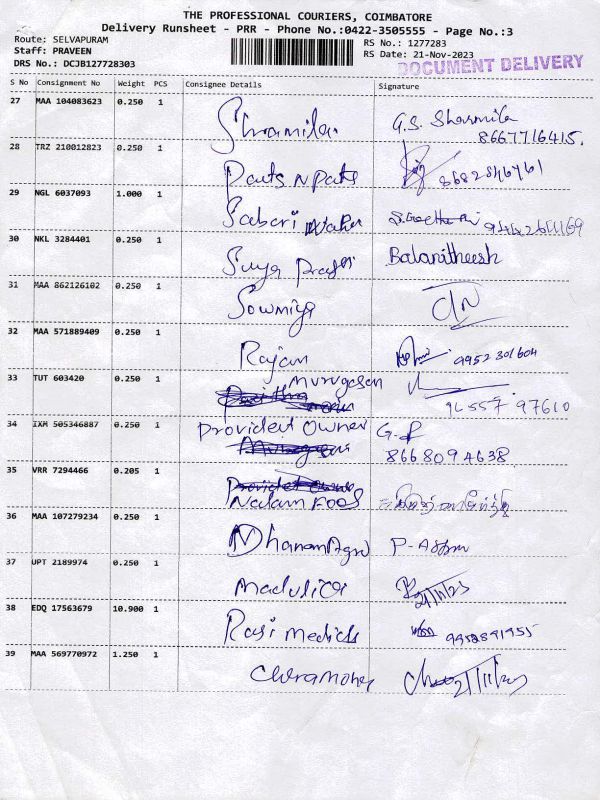 THE PROFESSIONAL COURIERS, COIMBATORE
Delivery Runsheet - PRR - Phone No.:0422-3505555 - Page No.:3
Route: SELVAPURAM
RS No.: 1277283
Staff: PRAVEEN
RS Date: 21-Nov-2023
DRS No.: DCJB127728303
DOCUMENT DELIVERY
S No Consignment No Weight PCS Consignee Details Signature
27 MAA 104083623 0.250 1 Sharmila G.S. Sharmila
8667716415.
28 TRZ 210012823 0.250 1
29 NGL 6037093 1.000 1 Sabari
30 NKL 3284401 0.250 1 Balanitheesh
31 MAA 862126102 0.250 1 Sowmiya
32 MAA 571889409 0.250 1 Rajan 9952301604
33 TUT 603420 0.250 1 Murugesan
9655797610
34 IXM 505346887 0.250 1 Provident Owner G.P
8668094638
35 VRR 7294466 0.205 1 Nalam Food
36 MAA 107279234 0.250 1 Dhanam Agro
37 UPT 2189974 0.250 1 21/11/23
38 EDQ 17563679 10.900 1 Rasi Medicls
39 MAA 569770972 1.250 1 21/11/23